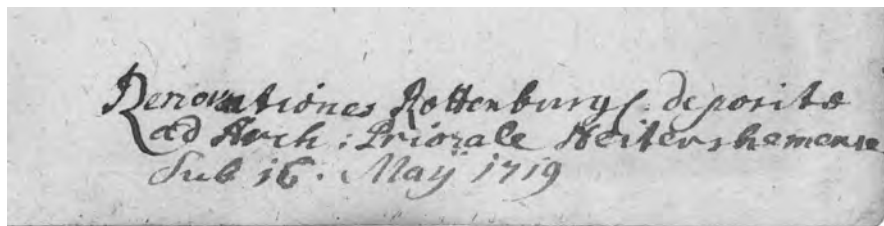 Renovationes Rottenburg: deposite
ad Arch: Priorale Heitershemense
Sub 16. Maij 1719